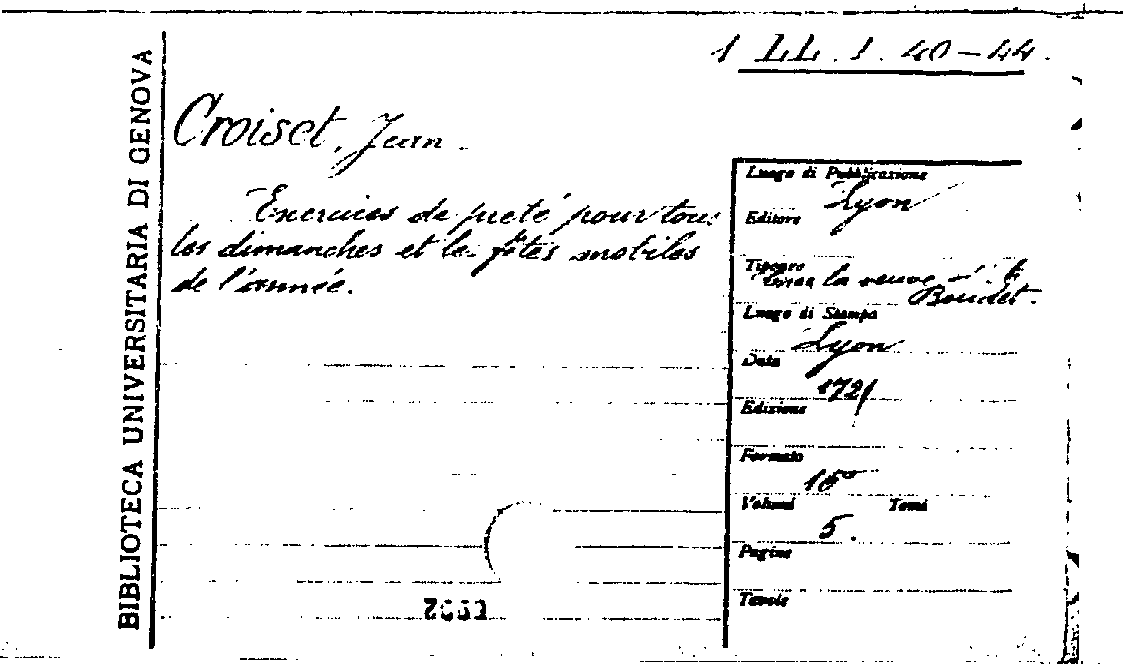 BIBLIOTECA UNIVERSITARIA DI GENOVA
1 LL. 1. 40-44.
Croiset, Jean.
Exercices de pieté pour tous
les dimanches et les fêtes mobiles
de l'année.
Luogo di Pubblicazione
Lyon
Editore
Tipogro
la veuve
Boudet.
Luogo di Stampa
Lyon
Data
1721
Edizione
Formato
Volumi Tomi
5.
Pagine
Tavole